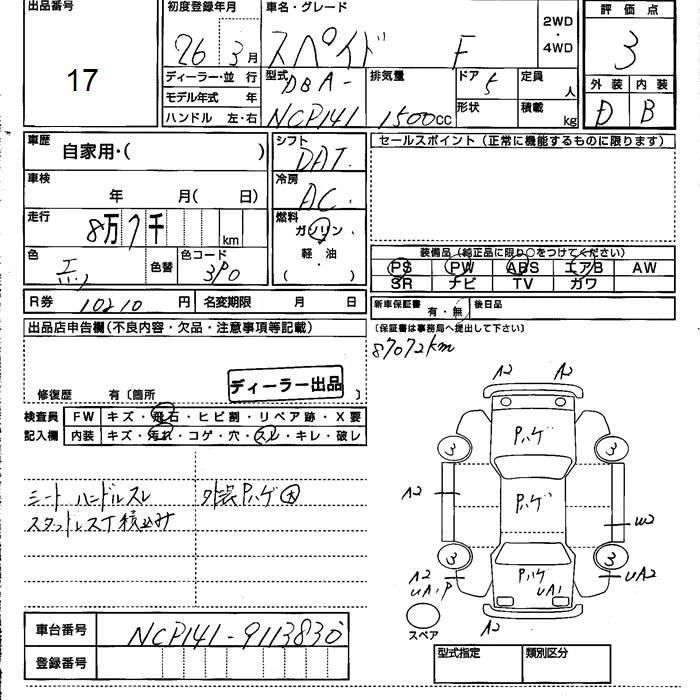 出品番号
17
初度登録年月
26年 3月
車名・グレード
スペイド F
2WD・4WD
評価点
3
外装 内装
D B
ディーラー・並行
モデル年式 年
ハンドル 左・右
型式
DBA-
NCP141
排気量
1500cc
ドア 5
形状
定員 人
積載 kg
車歴
自家用・( )
車検
年 月( 日)
走行
8万7千 km
色
色替
色コード
3P0
シフト
DAT
冷房
AC
燃料
ガソリン・
軽・油
( )
セールスポイント (正常に機能するものに限ります)
装備品 (純正品に限り○をつけてください)
PS PW ABS エアB AW
SR ナビ TV カワ
R券 10210円
名変期限 月 日
新車保証書 有・無
後日品
(保証書は事務局へ提出して下さい)
87072km
出品店申告欄 (不良内容・欠品・注意事項等記載)
修復歴 有〔箇所 〕
ディーラー出品
検査員記入欄
FW キズ・飛石・ヒビ割・リペア跡・X要
内装 キズ・汚れ・コゲ・穴・スレ・キレ・破レ
シート ハンドルスレ
スタットレスT積込み
外装Pハゲ大
A2 A2
Pハゲ
3 3
A2
Pハゲ
W2
3 3
A2
UA1P
Pハゲ
UA1
UA2
A2
スペア
車台番号
NCP141-9113830
登録番号
型式指定
類別区分